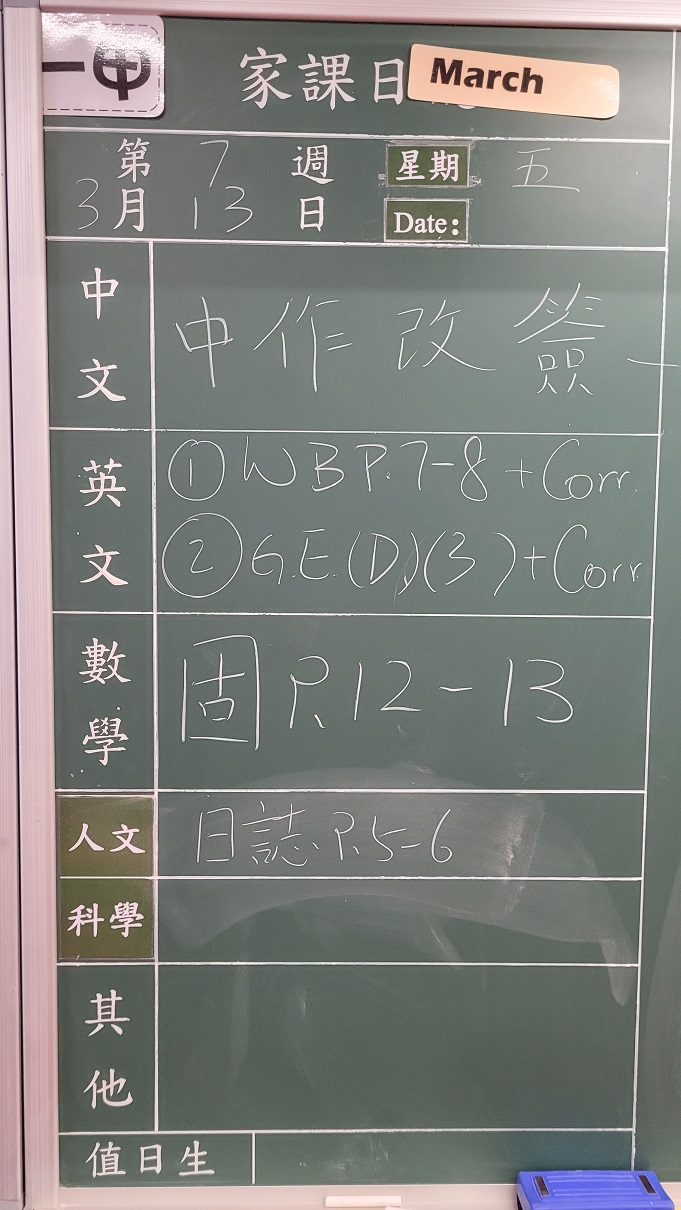 一甲
家課日
March
第 7 週 星期 五
3月 13 日 Date:
中文 中作改簽
英文 ①WBP.7-8+Corr.
②G.E.(D)(3)+Corr.
數學 固P.12-13
人文 日誌.P.5-6
科學
其他
值日生